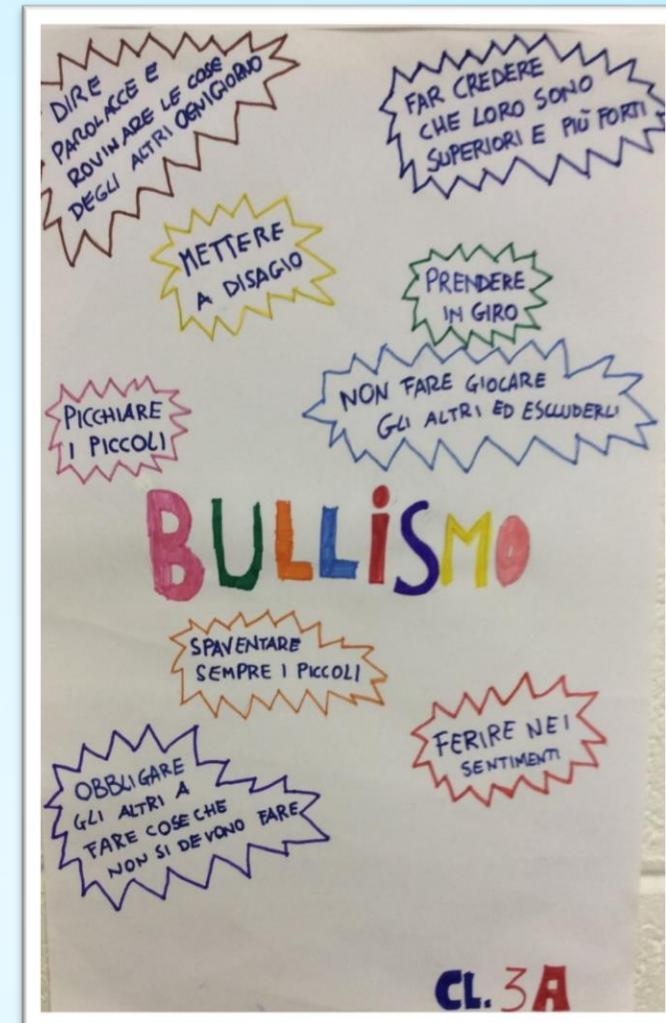 DIRE
PAROLACCE E
ROVINARE LE COSE
DEGLI ALTRI OGNI GIORNO
FAR CREDERE
CHE LORO SONO
SUPERIORI E PIÙ FORTI
METTERE
A DISAGIO
PRENDERE
IN GIRO
PICCHIARE
I PICCOLI
NON FARE GIOCARE
GLI ALTRI ED ESCLUDERLI
BULLiSMO
SPAVENTARE
SEMPRE I PICCOLI
FERIRE NEI
SENTIMENTI
OBBLIGARE
GLI ALTRI A
FARE COSE CHE
NON SI DEVONO FARE
CL. 3A